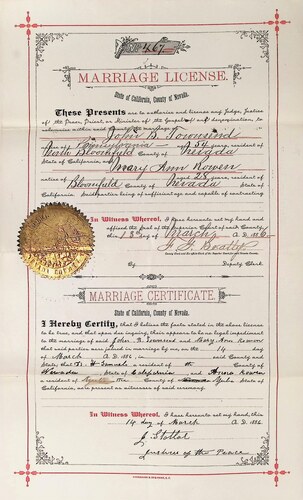 467
MARRIAGE LICENSE.
State of California, County of Nevada.
These Presents are to authorize and license any Judge, Justice
of the Peace, Priest, or Minister of the Gospel of any denomination, to
solemnize within said County the marriage of
John B. Townsend
native of Pennsylvania aged 34 years, resident of
North Bloomfield County of Nevada
State of California, and
Mary Ann Rowen
native of aged 28 years, resident of
Bloomfield County of Nevada
State of California. Said parties being of sufficient age and capable of contracting
In Witness Whereof, I have hereunto set my hand and
affixed the Seal of the Superior Court of said County,
this 13th day of March A. D. 1886
F. G. Beatty
County Clerk and Ex-officio Clerk of the Superior Court for said Nevada County.
By
Deputy Clerk.
MARRIAGE CERTIFICATE.
State of California, County of Nevada.
I Hereby Certify, that I believe the facts stated in the above license
to be true, and that upon due inquiry, there appears to be no legal impediment
to the marriage of said John B. Townsend and Mary Ann Rowen
that said parties were joined in marriage by me, on the 14 day
of March A. D. 1886, in said County and
State; that a resident of the County of
Nevada State of California and Anna Rowen
a resident of County of Yuba State of
California, were present as witnesses of said ceremony.
In Witness Whereof, I have hereunto set my hand, this
14 day of March A. D. 1886
Justice of the Peace